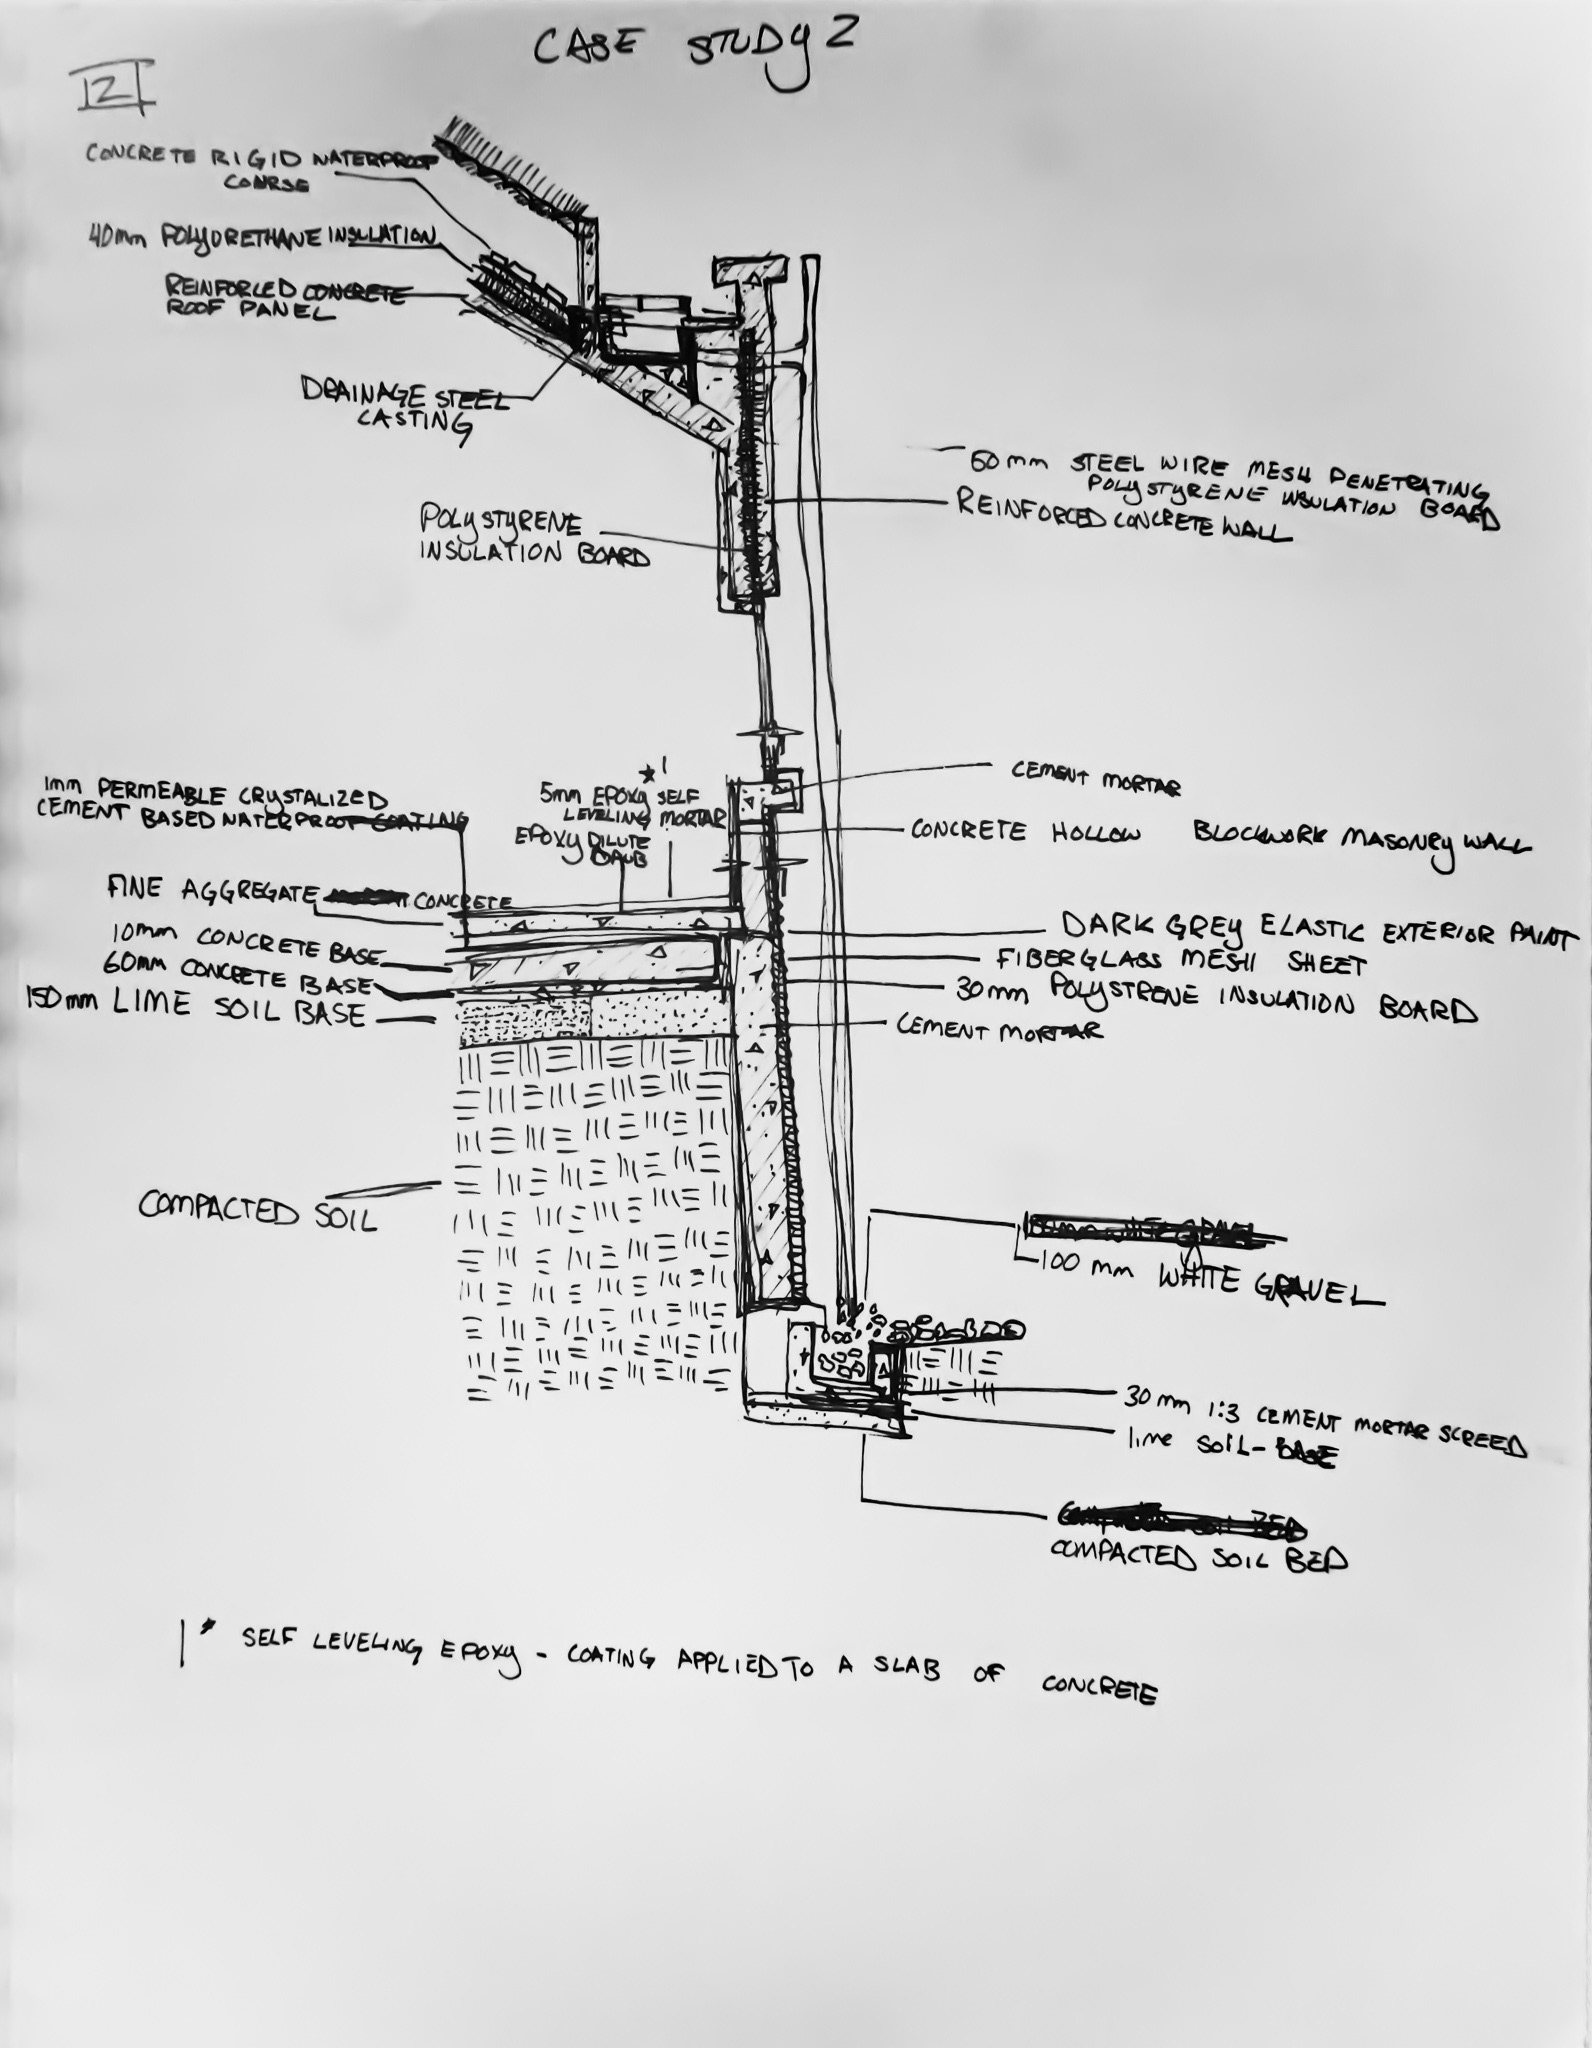 CASE STUDY 2
12
CONCRETE RIGID WATERPROOF
COARSE
40mm POLYURETHANE INSULATION
REINFORCED CONCRETE
ROOF PANEL
DRAINAGE STEEL
CASTING
60mm STEEL WIRE MESH PENETRATING
POLYSTYRENE INSULATION BOARD
REINFORCED CONCRETE WALL
POLYSTYRENE
INSULATION BOARD
CEMENT MORTAR
1mm PERMEABLE CRYSTALIZED
CEMENT BASED WATERPROOF COATING
* 1
5mm EPOXY SELF
LEVELING MORTAR
EPOXY DILUTE
DAUB
CONCRETE HOLLOW BLOCKWORK MASONRY WALL
FINE AGGREGATE CONCRETE
10mm CONCRETE BASE
60mm CONCRETE BASE
150mm LIME SOIL BASE
DARK GREY ELASTIC EXTERIOR PAINT
FIBERGLASS MESH SHEET
30mm POLYSTRENE INSULATION BOARD
CEMENT MORTAR
COMPACTED SOIL
100 mm WHITE GRAVEL
30mm 1:3 CEMENT MORTAR SCREED
lime SOIL-BASE
COMPACTED SOIL BED
1* SELF LEVELING EPOXY - COATING APPLIED TO A SLAB OF CONCRETE